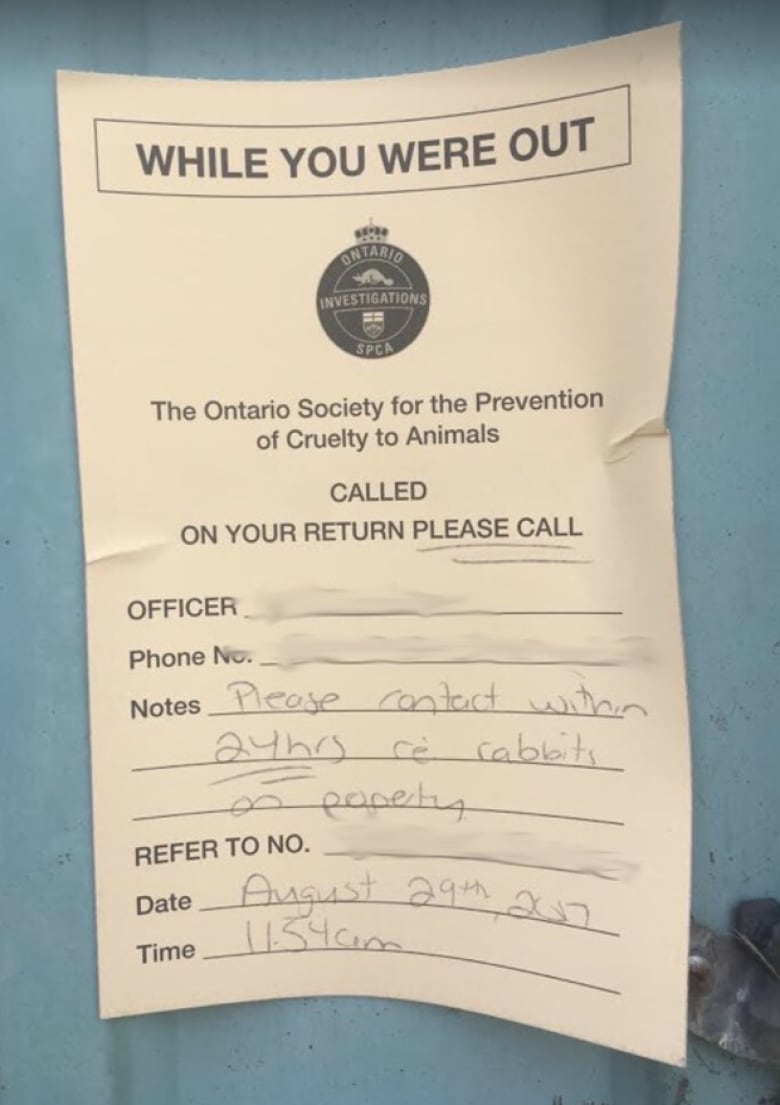 WHILE YOU WERE OUT
ONTARIO
INVESTIGATIONS
SPCA
The Ontario Society for the Prevention
of Cruelty to Animals
CALLED
ON YOUR RETURN PLEASE CALL
OFFICER
Phone No.
Notes Please contact within
24hrs re rabbits
on paperty
REFER TO NO.
Date August 29th, 2017
Time 11:54am